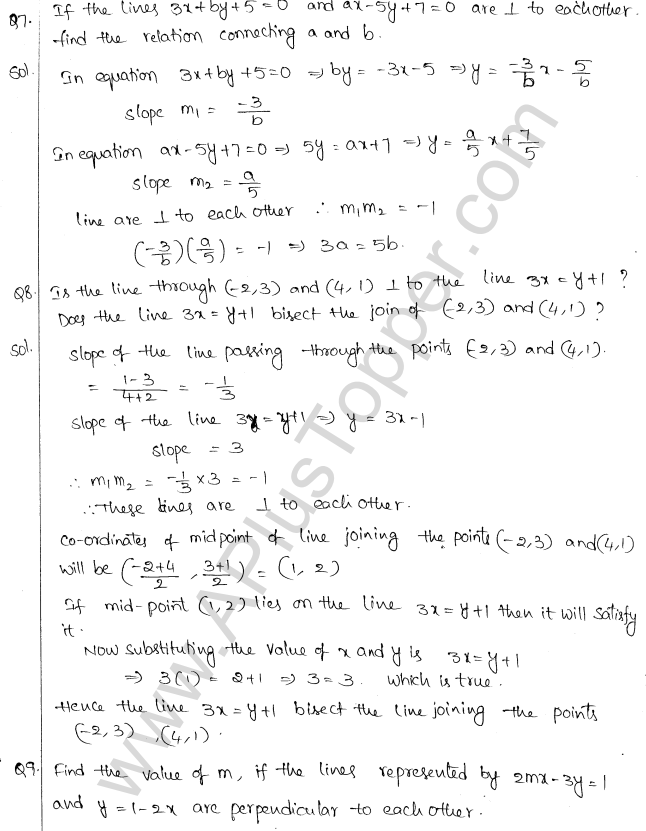 Q7. If the lines 3x+by+5=0 and ax-5y+7=0 are ⊥ to eachother.
find the relation connecting a and b.
Sol. In equation 3x+by+5=0 ⇒ by = -3x-5 ⇒ y = -3/b x - 5/b
slope m₁ = -3/b
In equation ax-5y+7=0 ⇒ 5y = ax+7 ⇒ y = a/5 x + 7/5
slope m₂ = a/5
line are ⊥ to each other ∴ m₁m₂ = -1
(-3/b)(a/5) = -1 ⇒ 3a = 5b.
Q8. Is the line through (-2,3) and (4,1) ⊥ to the line 3x = y+1 ?
Does the line 3x = y+1 bisect the join of (-2,3) and (4,1) ?
Sol. slope of the line passing through the points (-2,3) and (4,1).
= (1-3)/(4+2) = -1/3
slope of the line 3x = y+1 ⇒ y = 3x-1
slope = 3
∴ m₁m₂ = -1/3 × 3 = -1
∴ These lines are ⊥ to each other.
co-ordinates of midpoint of line joining the points (-2,3) and (4,1)
will be ((-2+4)/2 , (3+1)/2) = (1, 2)
If mid-point (1,2) lies on the line 3x = y+1 then it will satisfy
it.
Now substituting the value of x and y is 3x = y+1
⇒ 3(1) = 2+1 ⇒ 3 = 3. which is true.
Hence the line 3x = y+1 bisect the line joining the points
(-2,3) , (4,1).
Q9. Find the value of m, if the lines represented by 2mx-3y=1
and y = 1-2x are perpendicular to each other.
www.APlusTopper.com